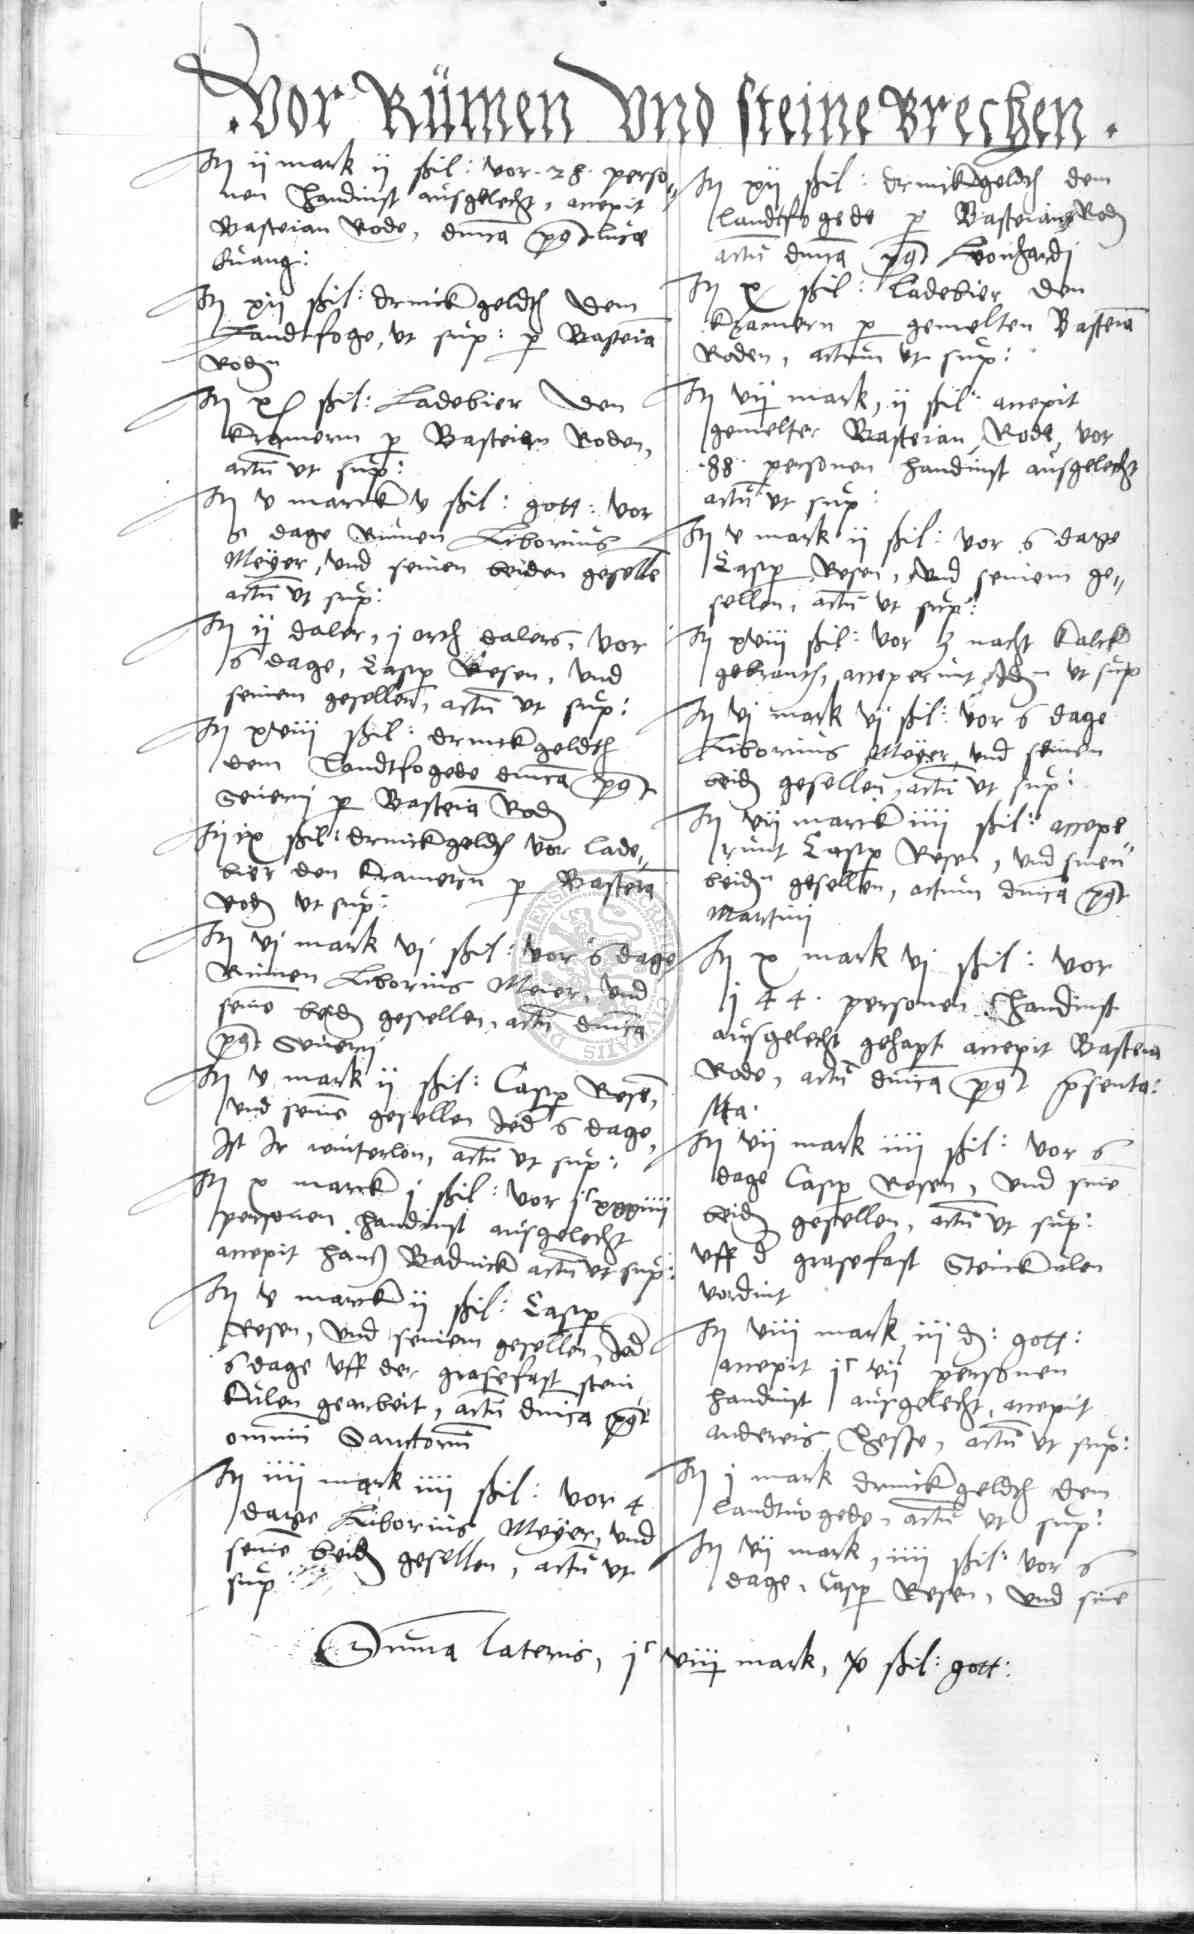 .Vor Rümen Vnd steine Brechen.
It ij mark ij ßil: vor .28. perso„
nen handinst ausgelecht, accepit
Basteian Rode, dnica post luce
Euang:
It xij ßil: drinckgeldt dem
Landtfoge, ut sup: p Basteia
Roden
It ßil: Ladebier den
Kramern p Basteian Roden,
actu ut sup:
It v marck v ßil: gott: vor
5 dage Rümen Liborius
Meyer, vnd seinen beiden geselle
actu ut sup:
It ij daler, j orth dalers, vor
6 dage, Casp Resen, vnd
seinem gesellen, actu ut sup:
It xviii ßil: drinckgeldt
dem Landtfogede dnica post
Seuerij p Basteia Roden
It ix ßil: drinckgeldt vor lade„
bier den Kramern p Basteia
Roden ut sup:
It vj mark vj ßil: vor 6 dage
Rümen Liborius Meier, vnd
seine beiden gesellen, actu dnica
post Seuerij
It v mark ij ßil: Casp Resen,
vnd seine gesellen Jed 6 dage,
Ist Ir winterlon, actu ut sup:
It x marck j ßil: vor jc xxxiiii
personen handinst ausgelecht
accepit hans Radnick actu ut sup:
It v marck ij ßil: Casp
Resen, vnd seinem gesellen, Jed
6 dage vff der grasefast stein
Kulen gearbeit, actu dnica post
omniu Sanctoru
It iiii mark iiii ßil: vor 4
dage Liborius Meyer, vnd
seine beiden gesellen, actu ut
sup:
It xij ßil: drinckgeldt dem
landtfogede p Basteian Roden
actu dnica post Leonhardj
It ßil: Ladebier den
Kramern p gemelten Basteia
Roden, actum ut sup:
It vij mark, ij ßil: accepit
gemelter Basteian Rode, vor
.88. personen handinst ausgelecht
actu ut sup:
It v mark ij ßil: vor 6 dage
Casp Resen, vnd seinem ge„
sellen, actu ut sup:
It xviii ßil: vor 3 nacht kalck
gebranth, acceperunt Iden ut sup
It vj mark vj ßil: vor 6 dage
Liborius Meyer, vnd seinen
beiden gesellen, actu ut sup:
It vij marck iiii ßil: accepe
runt Casp Resen, vnd sinen
beiden gesellen, actum dnica post
Martini
It x mark vj ßil: vor
j44. personen handinst
ausgelecht gehapt accepit Basteia
Rode, actu dnica post psenta:
Ma.
It vij mark iiii ßil: vor 6
dage Casp Resen, vnd sine
beiden gesellen, actu ut sup:
vff d grasefast Steinkulen
vordint
It viii mark, iij d: gott:
accepit jc vij personen
handinst ausgelecht, accepit
andereis hesse, actu ut sup:
It j mark drinckgeldt dem
landtuogede, actu ut sup:
It vij mark, iiii ßil: vor 6
dage, Casp Resen, vnd sine
Suma lateris, jc viij mark, xv ßil: gott: